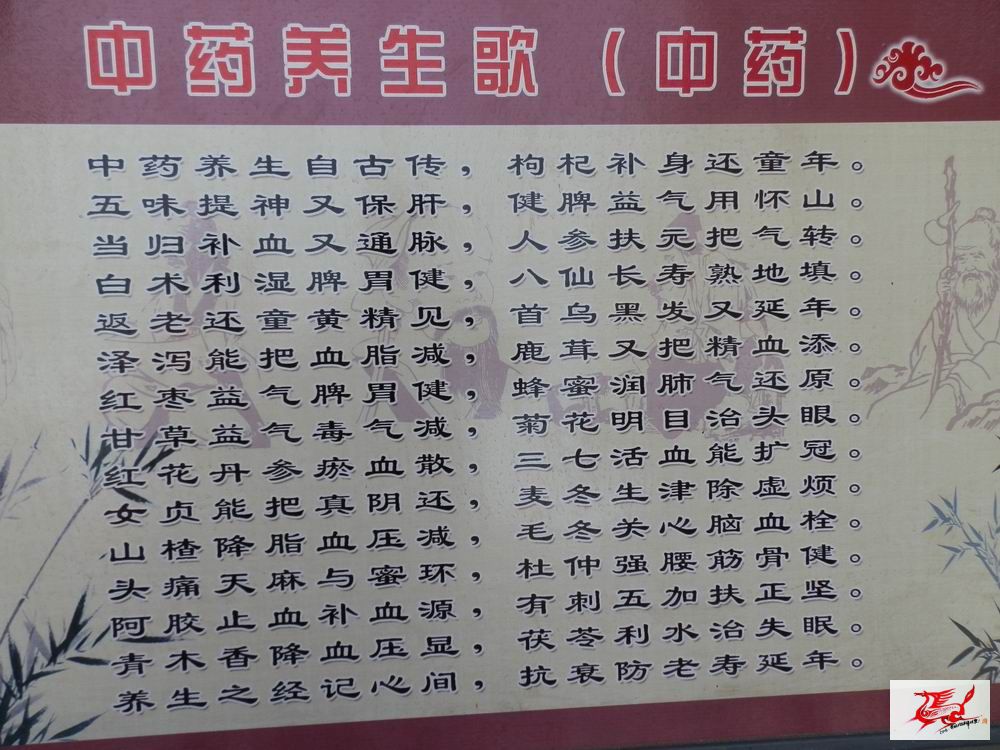 中药养生歌（中药）
中药养生自古传，枸杞补身还童年。
五味提神又保肝，健脾益气用怀山。
当归补血又通脉，人参扶元把气转。
白术利湿脾胃健，八仙长寿熟地填。
返老还童黄精见，首乌黑发又延年。
泽泻能把血脂减，鹿茸又把精血添。
红枣益气脾胃健，蜂蜜润肺气还原。
甘草益气毒气减，菊花明目治头眼。
红花丹参瘀血散，三七活血能扩冠。
女贞能把真阴还，麦冬生津除虚烦。
山楂降脂血压减，毛冬关心脑血栓。
头痛天麻与蜜环，杜仲强腰筋骨健。
阿胶止血补血源，有刺五加扶正坚。
青木香降血压显，茯苓利水治失眠。
养生之经记心间，抗衰防老寿延年。